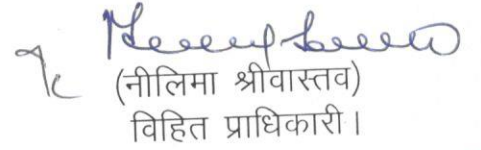 (नीलिमा श्रीवास्तव)
विहित प्राधिकारी।